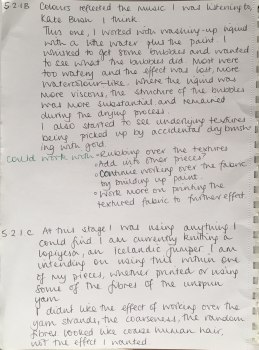 5.2.1B Colours reflected the music I was listening to,
Kate Bush I think.
This one, I worked with washing-up liquid
with a little water plus the paint. I
whisked to get some bubbles and wanted
to see what the bubbles did. Most were
too watery and the effect was lost, more
watercolour-like. Where the liquid was
more viscous, the structure of the bubbles
was more substantial and remained
during the drying process.
I also started to see underlying textures
being picked up by accidental dry brush-
ing with gold.
Could work with • Rubbing over the textures
• Add into other pieces?
• Continue working over the fabric
by building up paint
• Work more on printing the
textured fabric to further effect
5.2.1C At this stage I was using anything I
could find. I am currently knitting a
lopipeysa, an Icelandic jumper. I am
intending on using this within one
of my pieces, whether printed or using
some of the fibres of the unspun
yarn.
I didnt like the effect of working over the
yarn strands, the coarseness, the random
fibres looked like coarse human hair,
not the effect I wanted.